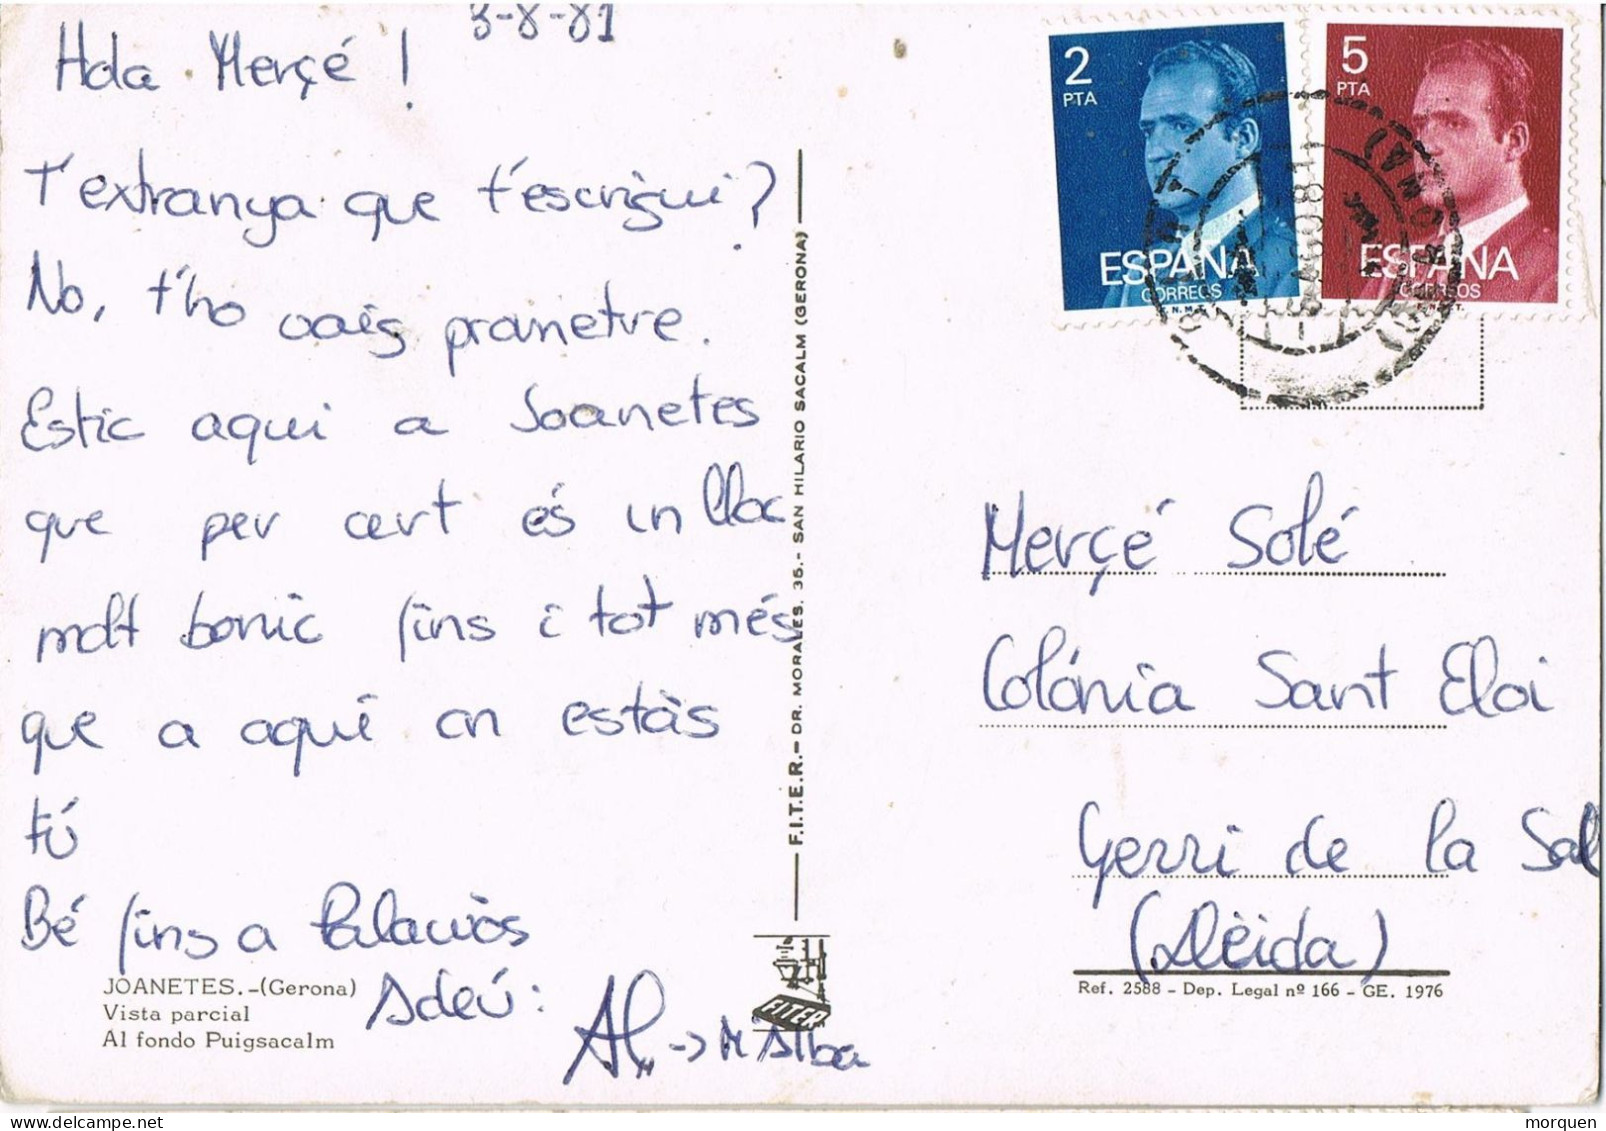 3-8-81
Hola Merçé !
T'extranya que t'escrigui?
No, t'ho vais prometre.
Estic aqui a Joanetes
que per cert és un lloc
molt bonic fins i tot més
que a aquí on estàs
tú
Bé fins a Palauràs
Adeú:
-> M Alba
JOANETES.-(Gerona)
Vista parcial
Al fondo Puigsacalm
F.I.T.E.R.- DR. MORALES. 35.- SAN HILARIO SACALM (GERONA)
FITER
2
PTA
ESPAÑA
CORREOS
5
PTA
ESPAÑA
CORREOS
Merçé Solé
Colónia Sant Eloi
Gerri de la Sal
(Lleida)
Ref. 2588 - Dep. Legal nº 166 - GE. 1976
morquen